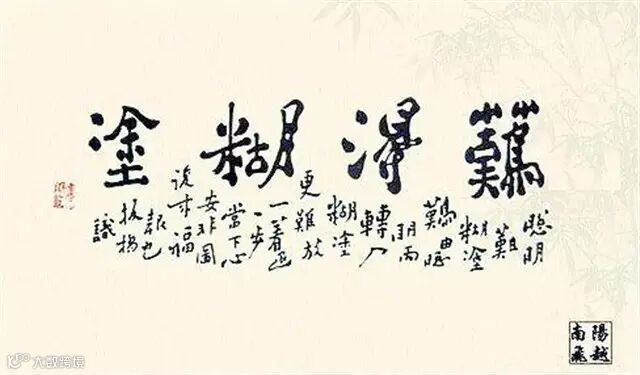 難得糊塗
聰明
難
糊塗
難由聰
明而
轉入
糊塗
更難放
一著退
一步
當下心
安非圖
後来福
報也
板橋
識
陽越
南飛
大数跨境